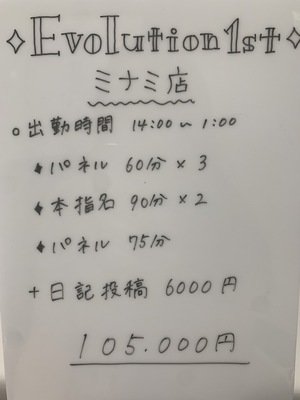 ✧Evolution1st✧
ミナミ店
○出勤時間 14:00〜1:00
♦パネル 60分×3
♦本指名 90分×2
♦パネル 75分
+日記投稿 6000円
105.000円